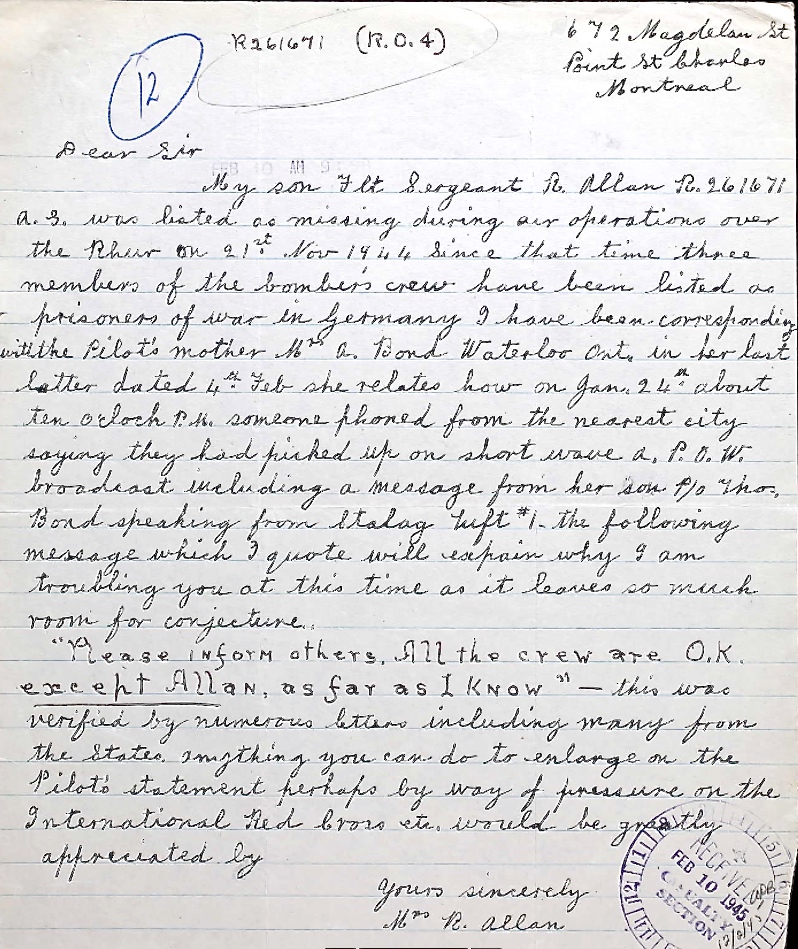 R261671 (R.O.4)
12
672 Magdelan St
Point St Charles
Montreal
Dear Sir
FEB 10 AM
My son Flt Sergeant R. Allan R.261671
A.G. was listed as missing during air operations over
the Rhur on 21st Nov 1944 Since that time three
members of the bomber's crew have been listed as
prisoners of war in Germany I have been corresponding
with the Pilot's mother Mrs A. Bond Waterloo Ont. in her last
letter dated 4th Feb she relates how on Jan. 24th about
ten o'cloch P.M. someone phoned from the nearest city
saying they had picked up on short wave a P.O.W.
broadcast including a message from her son P/o Tho.
Bond speaking from Stalag Luft #1 the following
message which I quote will expain why I am
troubling you at this time as it leaves so much
room for conjecture.
"Please inform others. All the crew are O.K.
except Allan, as far as I know" — this was
verified by numerous letters including many from
the States. anything you can do to enlarge on the
Pilot's statement perhaps by way of pressure on the
International Red Cross etc. would be greatly
appreciated by
Yours sincerely
Mrs R. Allan
RECEIVED
FEB 10 1945
CASUALTY
SECTION